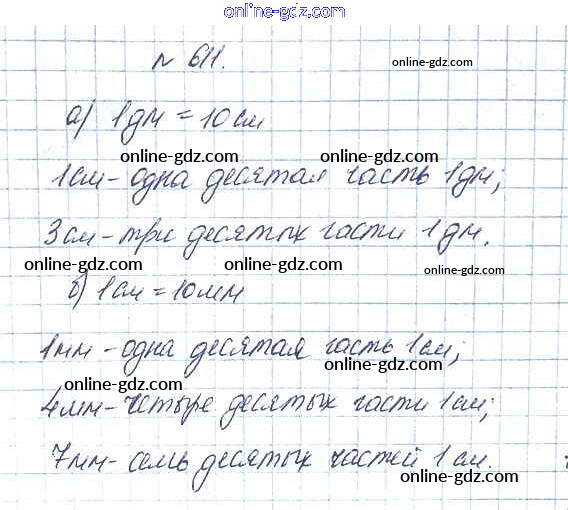 online-gdz.com
online-gdz.com
№ 611.
online-gdz.com
а) 1дм = 10см
online-gdz.com online-gdz.com
1см - одна десятая часть 1дм;
online-gdz.com
3см - три десятых части 1дм.
online-gdz.com online-gdz.com online-gdz.com
б) 1см = 10мм
online-gdz.com
1мм - одна десятая часть 1см;
online-gdz.com
online-gdz.com
4мм - четыре десятых части 1см;
online-gdz.com
7мм - семь десятых частей 1см.
online-gdz.com